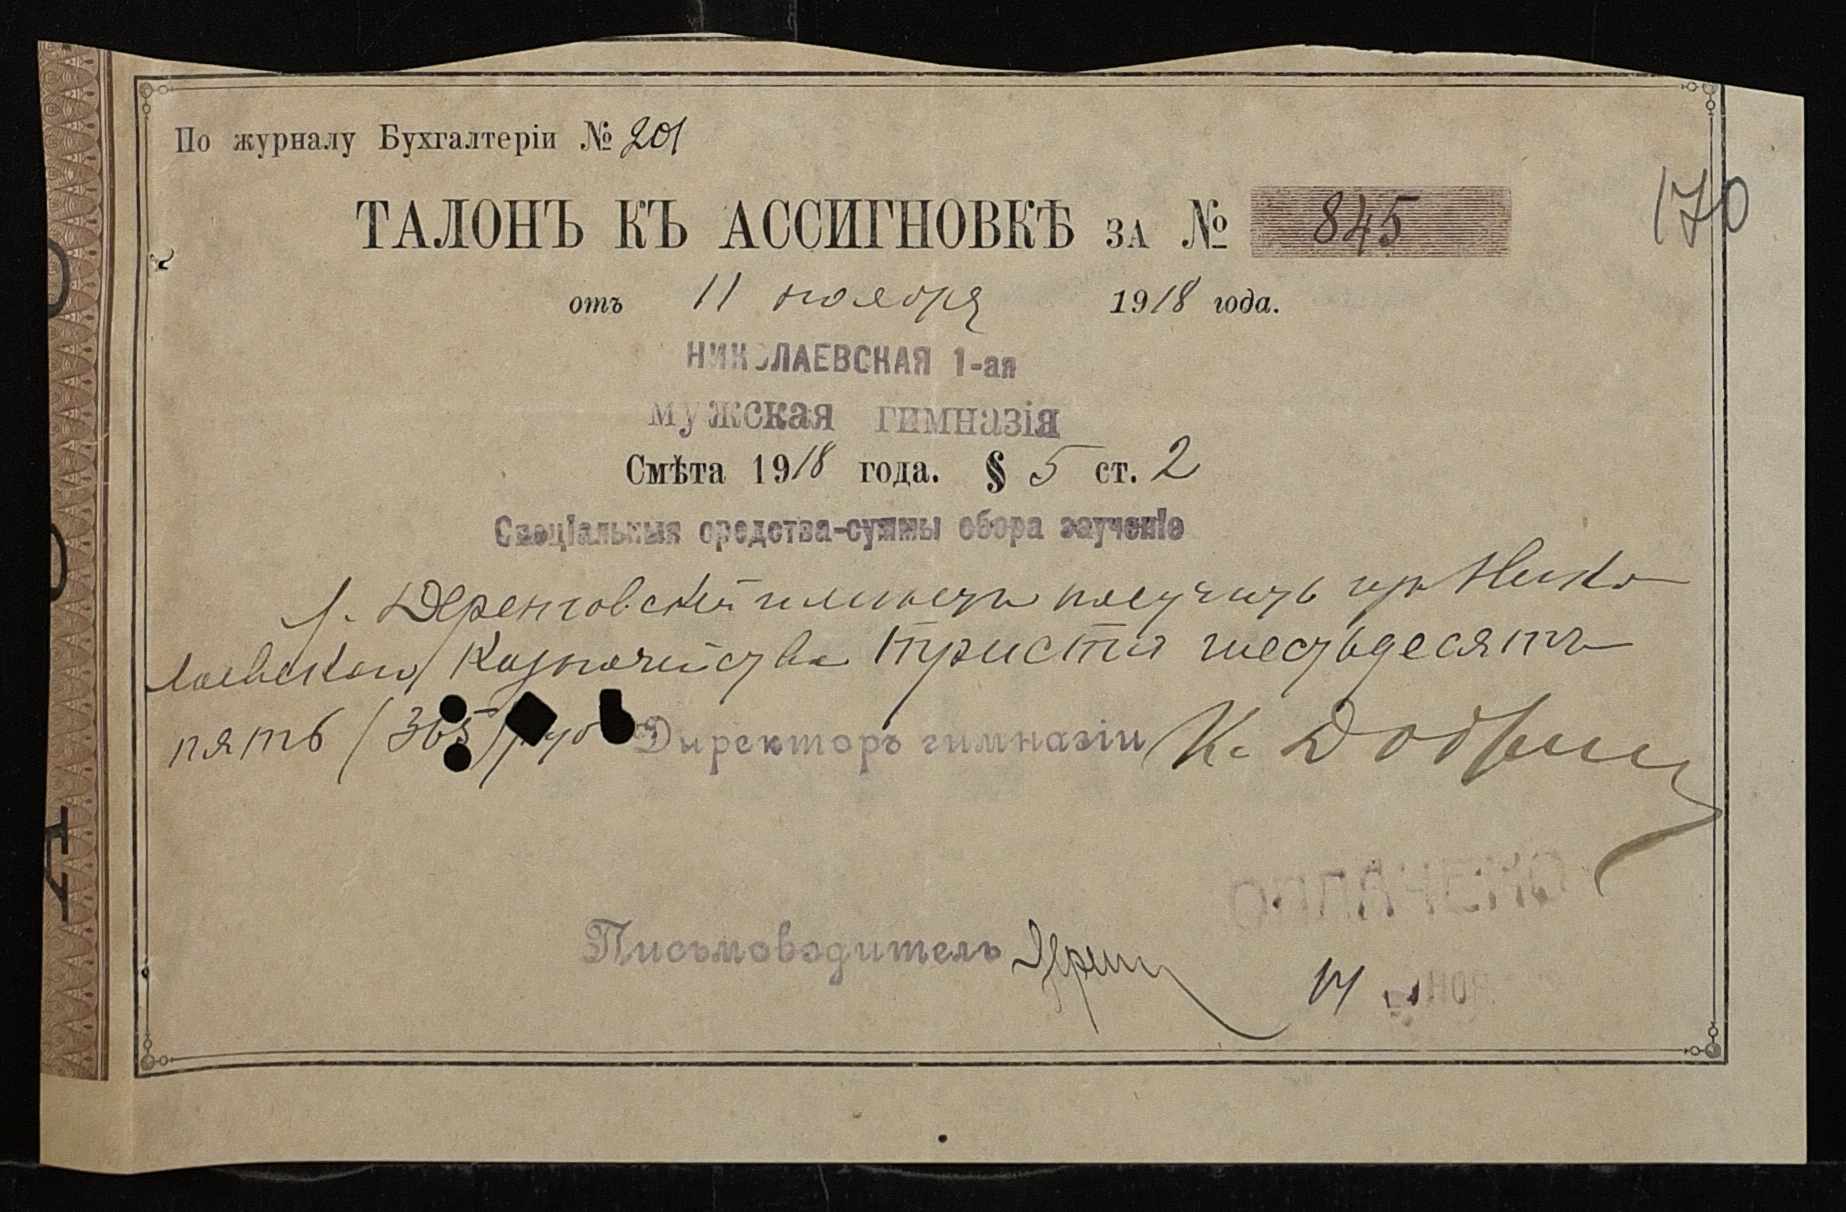 По журналу Бухгалтеріи № 201
170
ТАЛОНЪ КЪ АССИГНОВКѢ ЗА № 845
отъ 11 ноября 1918 года.
НИКОЛАЕВСКАЯ 1-ая
мужская гимназія
Смѣта 1918 года. § 5 ст. 2
Спеціальныя средства-суммы сбора заученіе
Г. Деренговский имѣетъ получить изъ Нико
лаевскаго Казначейства триста шестьдесятъ
пять (365) руб
Директоръ гимназіи К.
ОПЛАЧЕНО
Письмоводитель
НОЯ